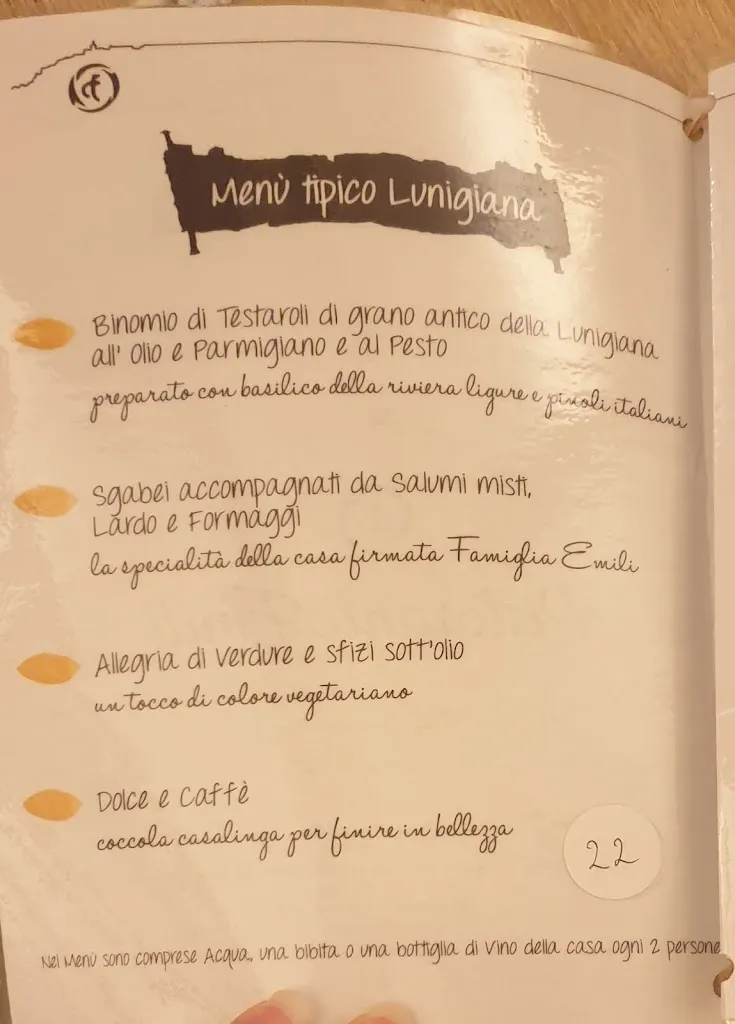 Menù tipico Lunigiana
Binomio di Testaroli di grano antico della Lunigiana
all' Olio e Parmigiano e al Pesto
preparato con basilico della riviera ligure e pinoli italiani
Sgabei accompagnati da Salumi misti,
Lardo e Formaggi
la specialità della casa firmata Famiglia Emili
Allegria di verdure e sfizi sott'olio
un tocco di colore vegetariano
Dolce e Caffè
coccola casalinga per finire in bellezza
22
Nel Menù sono comprese Acqua, una bibita o una bottiglia di Vino della casa ogni 2 persone